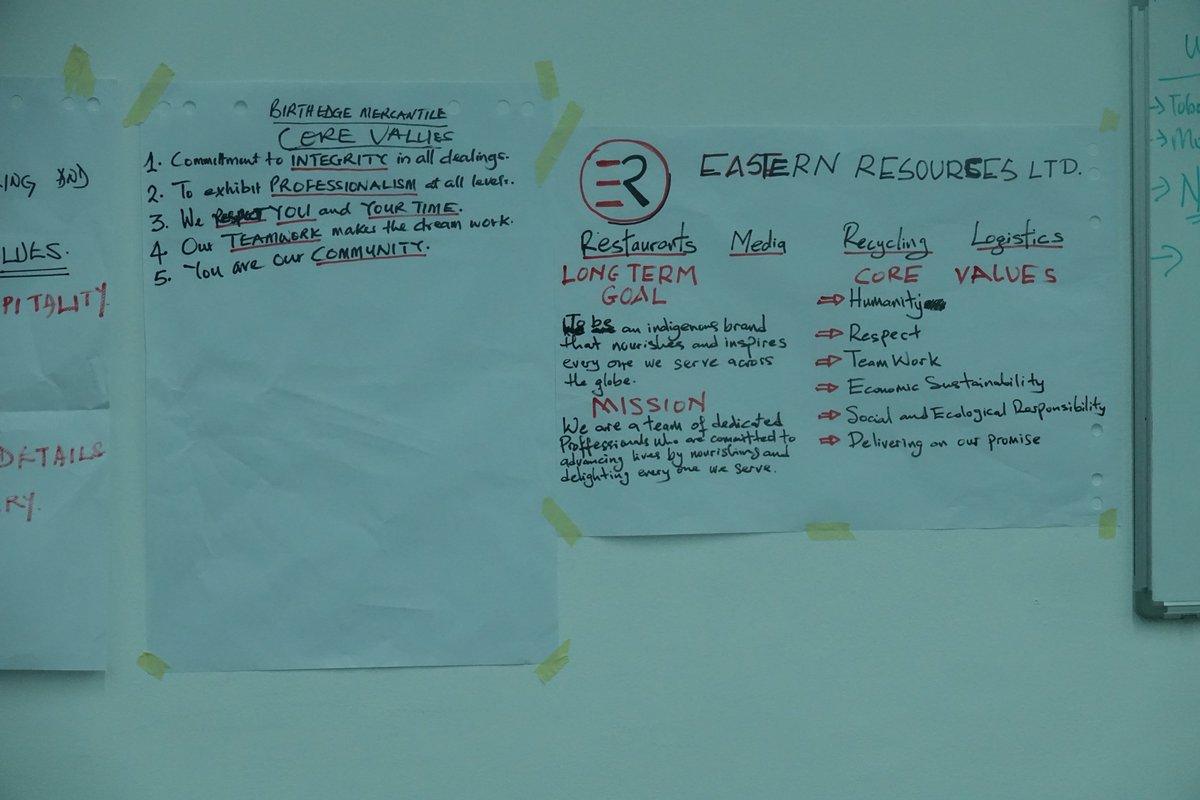 AND
PITALITY
DETAILS
BIRTHEDGE MERCANTILE
CORE VALUES
1. Commitment to INTEGRITY in all dealings.
2. To exhibit PROFESSIONALISM at all levels.
3. We RESPECT YOU and YOUR TIME.
4. Our TEAMWORK makes the dream work.
5. You are our COMMUNITY.
ER EASTERN RESOURCES LTD.
Restaurants Media Recycling Logistics
LONG TERM
GOAL
To be an indigenous brand
that nourishes and inspires
every one we serve across
the globe.
MISSION
We are a team of dedicated
Proffessionals who are committed to
advancing lives by nourishing and
delighting every one we serve.
CORE VALUES
⇒ Humanity
⇒ Respect
⇒ Team Work
⇒ Economic Sustainability
⇒ Social and Ecological Responsibility
⇒ Delivering on our promise